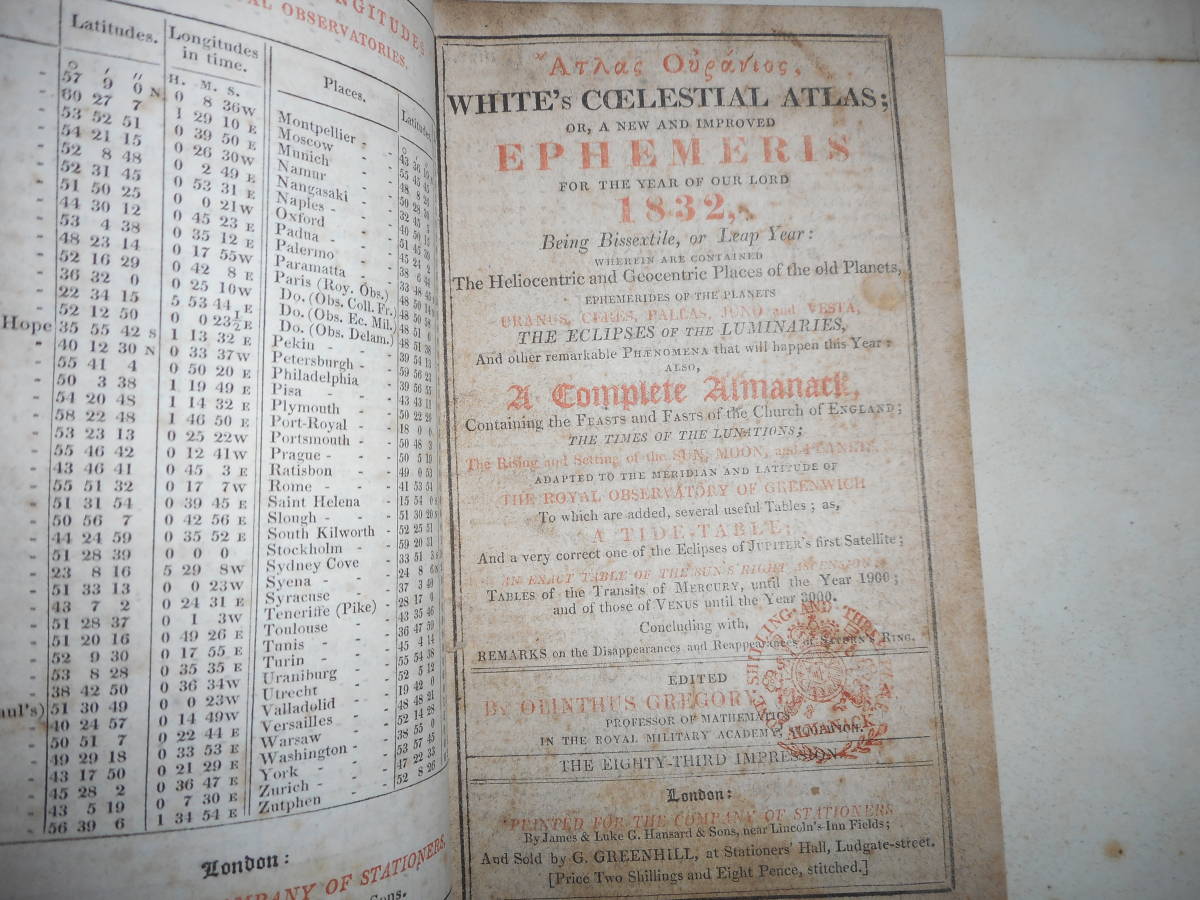 NGITUDES
AL OBSERVATORIES.
Latitudes. Longitudes in time. Places. Latitudes
° ′ ″ H. M. S.
57 9 0 N 0 8 36 W
60 27 7 1 29 10 E
53 52 51 0 39 50 E
54 21 15 0 26 30 W
52 8 48 0 2 49 E
52 31 45 0 53 31 E
51 50 25 0 0 21 W
44 30 12 0 45 23 E
53 4 38 0 35 12 E
48 23 14 0 17 55 W
52 16 29 0 42 8 E
36 32 0 0 25 10 W
22 34 15 5 53 44 E
52 12 50 0 0 23½ E
Hope 35 55 42 S 1 13 32 E
40 12 30 N 0 33 37 W
55 41 4 0 50 20 E
50 3 38 1 19 49 E
54 20 48 1 14 32 E
58 22 48 1 46 50 E
53 23 13 0 25 22 W
55 46 42 0 12 41 W
43 46 41 0 45 3 E
55 51 32 0 17 7 W
51 31 54 0 39 45 E
50 56 7 0 42 56 E
44 24 59 0 35 52 E
51 28 39 0 0 0
23 8 16 5 29 8 W
51 33 13 0 0 23 W
43 7 2 0 24 31 E
51 28 37 0 1 3 W
51 20 16 0 49 26 E
52 9 30 0 17 55 E
53 8 28 0 35 35 E
38 42 50 0 36 34 W
aul's) 51 30 49 0 0 23 W
40 24 57 0 14 49 W
50 51 7 0 22 44 E
49 29 18 0 33 53 E
43 17 50 0 21 29 E
45 28 2 0 36 47 E
43 5 19 0 7 30 E
56 39 6 1 34 54 E
Montpellier
Moscow
Munich
Namur
Nangasaki
Naples
Oxford
Padua
Palermo
Paramatta
Paris (Roy. Obs.)
Do. (Obs. Coll. Fr.)
Do. (Obs. Ec. Mil.)
Do. (Obs. Delam.)
Pekin
Petersburgh
Philadelphia
Pisa
Plymouth
Port-Royal
Portsmouth
Prague
Ratisbon
Rome
Saint Helena
Slough
South Kilworth
Stockholm
Sydney Cove
Syena
Syracuse
Teneriffe (Pike)
Toulouse
Tunis
Turin
Uraniburg
Utrecht
Valladolid
Versailles
Warsaw
Washington
York
Zurich
Zutphen
London:
MPANY OF STATIONERS,
Sons.
Ἄτλας Οὐράνιος,
WHITE's CŒLESTIAL ATLAS;
OR, A NEW AND IMPROVED
EPHEMERIS
FOR THE YEAR OF OUR LORD
1832,
Being Bissextile, or Leap Year:
WHEREIN ARE CONTAINED
The Heliocentric and Geocentric Places of the old Planets,
EPHEMERIDES OF THE PLANETS
URANUS, CERES, PALLAS, JUNO and VESTA,
THE ECLIPSES OF THE LUMINARIES,
And other remarkable PHÆNOMENA that will happen this Year:
ALSO,
A Complete Almanack,
Containing the FEASTS and FASTS of the Church of ENGLAND;
THE TIMES OF THE LUNATIONS;
The Rising and Setting of the SUN, MOON, and PLANETS
ADAPTED TO THE MERIDIAN AND LATITUDE OF
THE ROYAL OBSERVATORY OF GREENWICH
To which are added, several useful Tables; as,
A TIDE-TABLE;
And a very correct one of the Eclipses of JUPITER's first Satellite;
AN EXACT TABLE OF THE SUN'S RIGHT ASCENSION,
TABLES of the Transits of MERCURY, until the Year 1900;
and of those of VENUS until the Year 3000.
Concluding with,
REMARKS on the Disappearances and Reappearances of SATURN'S RING.
EDITED
BY OLINTHUS GREGORY,
PROFESSOR OF MATHEMATICS
IN THE ROYAL MILITARY ACADEMY,
THE EIGHTY-THIRD IMPRESSION.
London:
PRINTED FOR THE COMPANY OF STATIONERS
By James & Luke G. Hansard & Sons, near Lincoln's-Inn Fields;
And Sold by G. GREENHILL, at Stationers' Hall, Ludgate-street.
[Price Two Shillings and Eight Pence, stitched.]
SHILLING AND THREE
ALMANACK